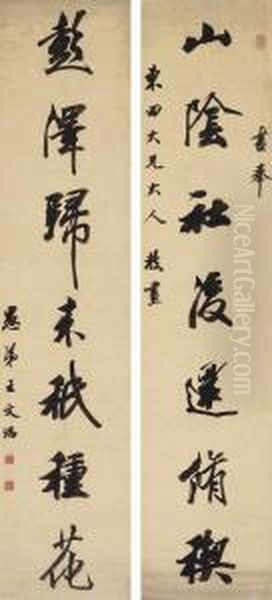 書奉
山陰社後還脩禊
東田大兄大人
彭澤歸來秖種花
愚弟王文治
NiceArtGallery.com